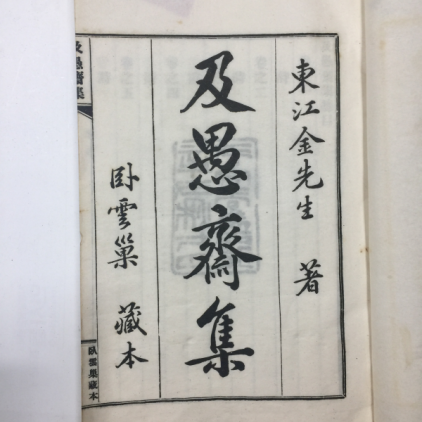 東江金先生 著
及愚齋集
臥雲巢 藏本
及愚齋集
臥雲巢藏本